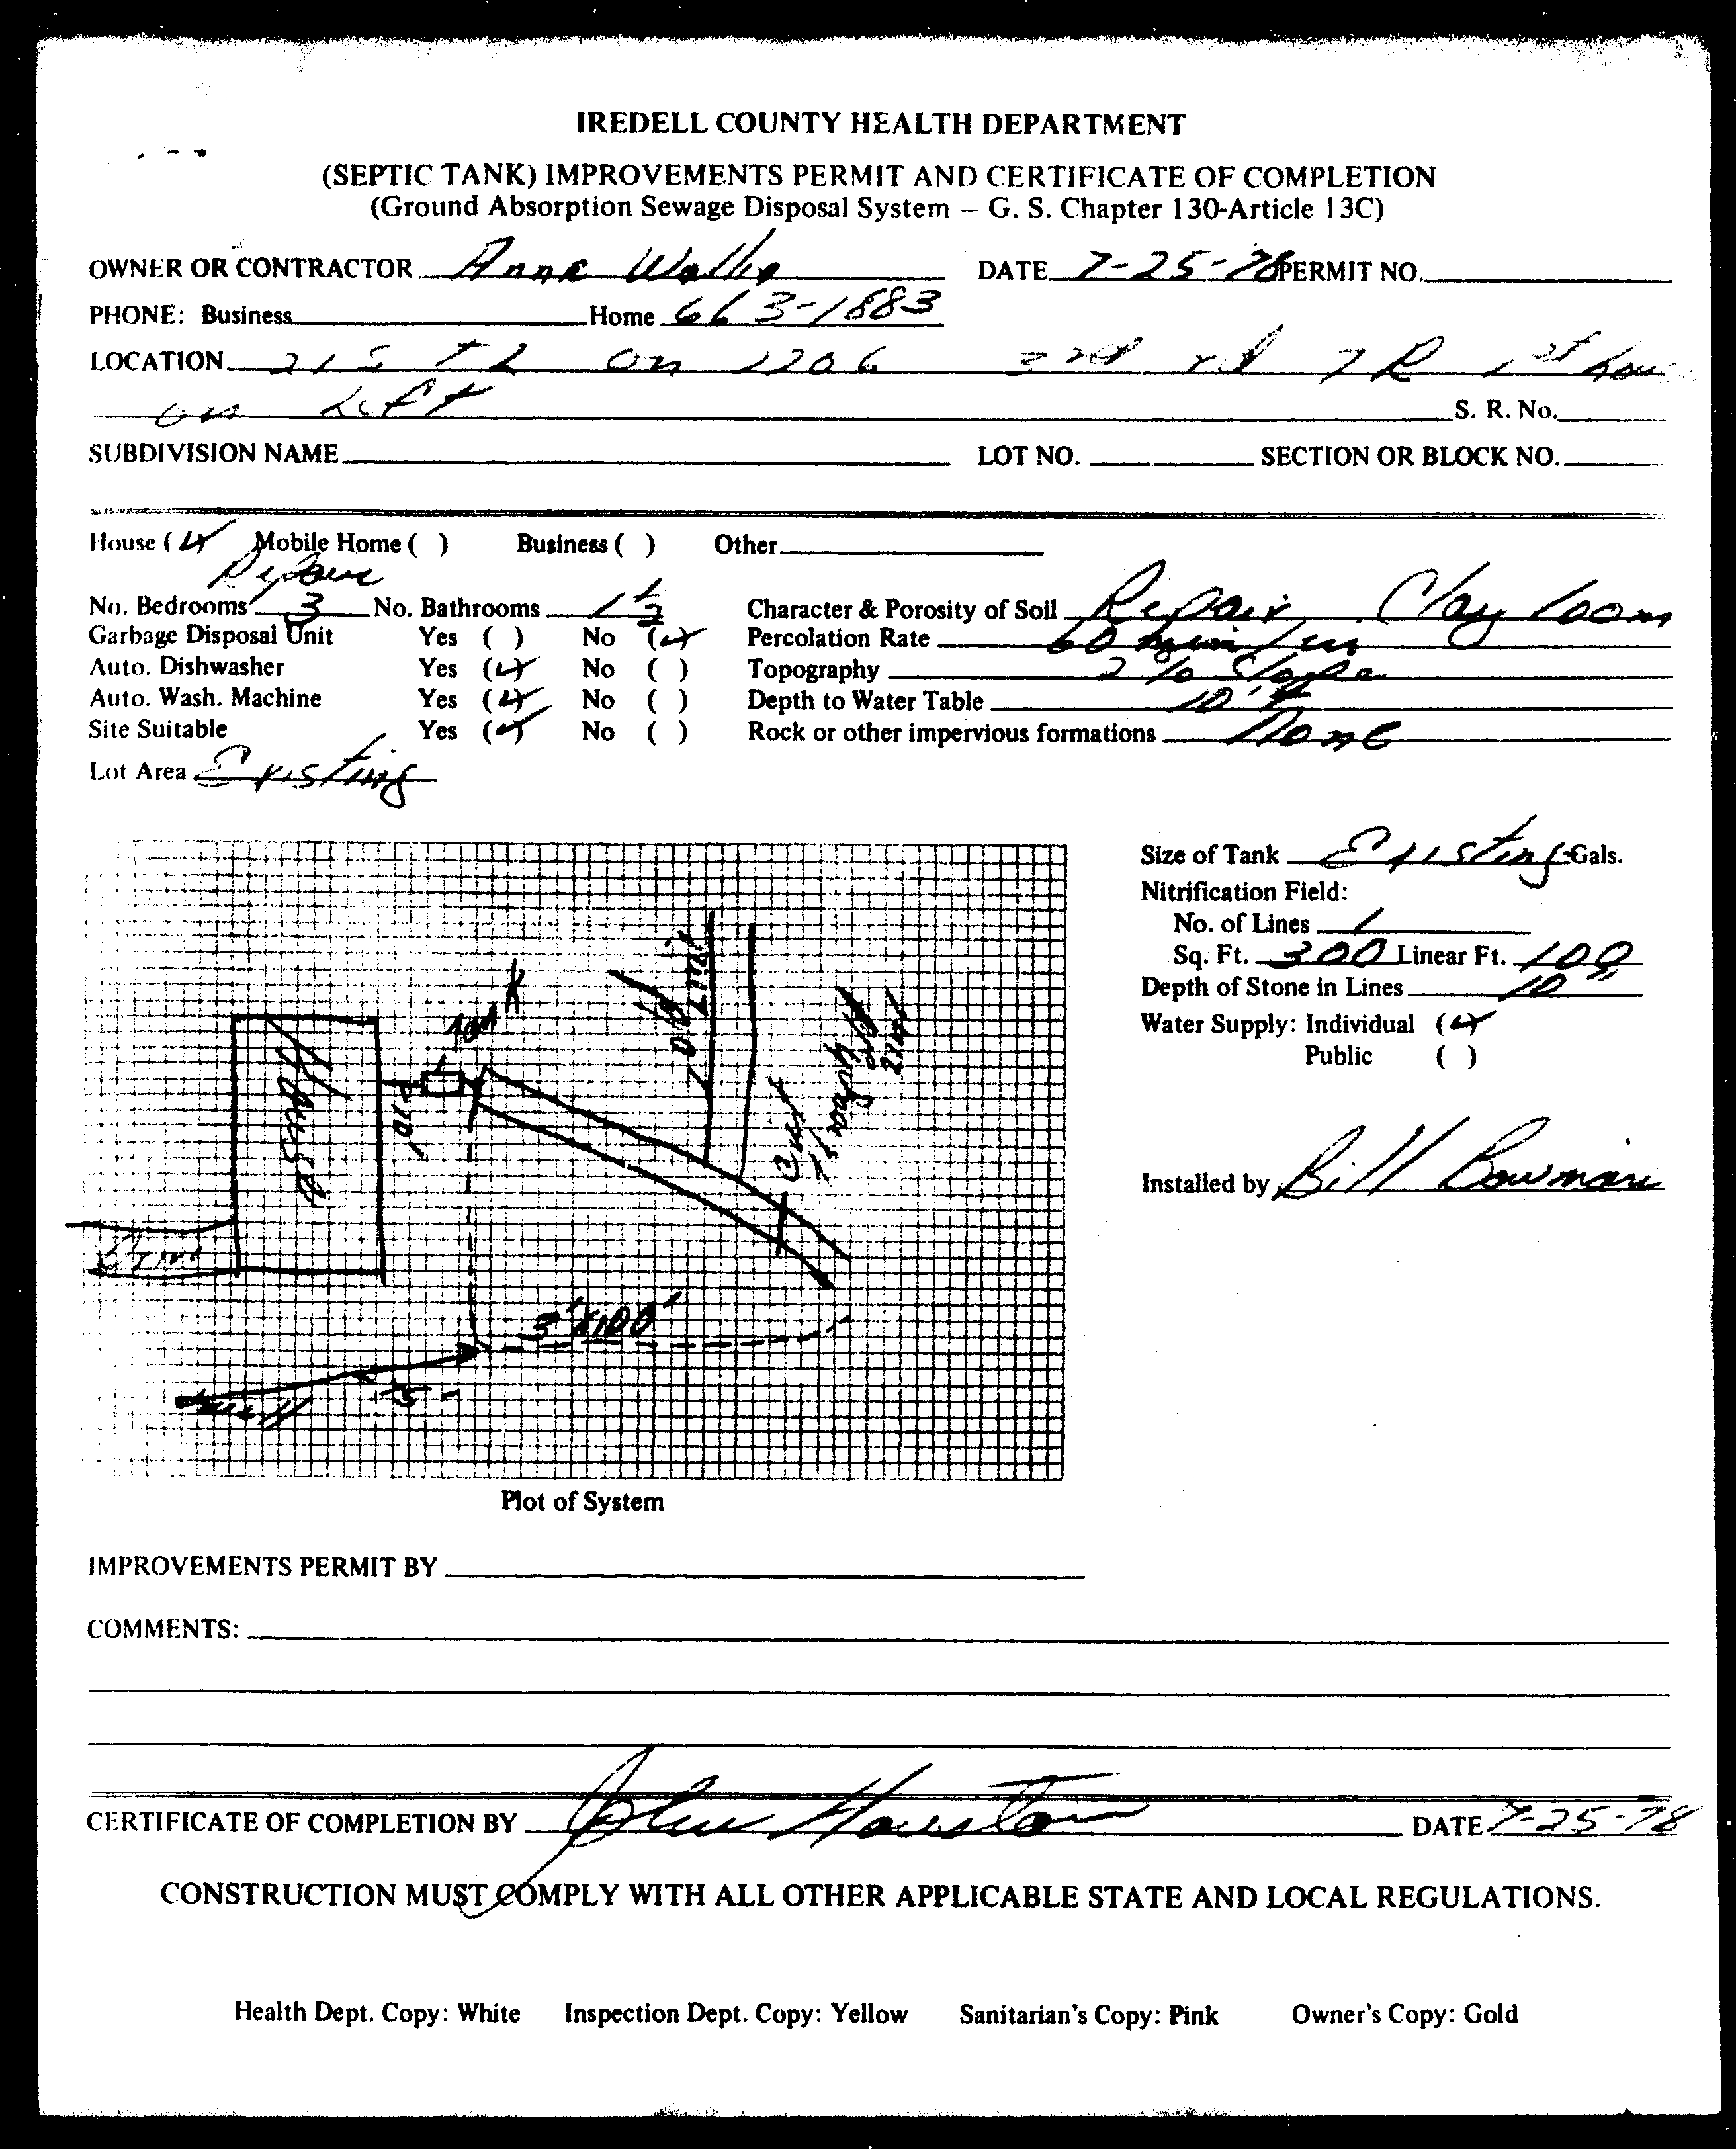 IREDELL COUNTY HEALTH DEPARTMENT
(SEPTIC TANK) IMPROVEMENTS PERMIT AND CERTIFICATE OF COMPLETION
(Ground Absorption Sewage Disposal System – G. S. Chapter 130-Article 13C)
OWNER OR CONTRACTOR Anne DATE 7-25-78 PERMIT NO.
PHONE: Business Home 663-1883
LOCATION 21 S T L on 1206 2nd rd T R 1st
on Left S. R. No.
SUBDIVISION NAME LOT NO. SECTION OR BLOCK NO.
House (✓) Mobile Home ( ) Business ( ) Other
Repair
No. Bedrooms 3 No. Bathrooms 1 1/2 Character & Porosity of Soil Repair Clay loom
Garbage Disposal Unit Yes ( ) No (✓) Percolation Rate 60 min/in
Auto. Dishwasher Yes (✓) No ( ) Topography 2 % Slope
Auto. Wash. Machine Yes (✓) No ( ) Depth to Water Table 10' +
Site Suitable Yes (✓) No ( ) Rock or other impervious formations None
Lot Area Existing
Size of Tank Existing Gals.
Nitrification Field:
No. of Lines 1
Sq. Ft. 300 Linear Ft. 100
Depth of Stone in Lines 10"
Water Supply: Individual (✓)
Public ( )
Installed by Bill Bowman
Tank
House
10'
Old
Cut
Through
old
line
Drive
3' X 100'
75
well
Plot of System
IMPROVEMENTS PERMIT BY
COMMENTS:
CERTIFICATE OF COMPLETION BY John Houston DATE 7-25-78
CONSTRUCTION MUST COMPLY WITH ALL OTHER APPLICABLE STATE AND LOCAL REGULATIONS.
Health Dept. Copy: White Inspection Dept. Copy: Yellow Sanitarian's Copy: Pink Owner's Copy: Gold